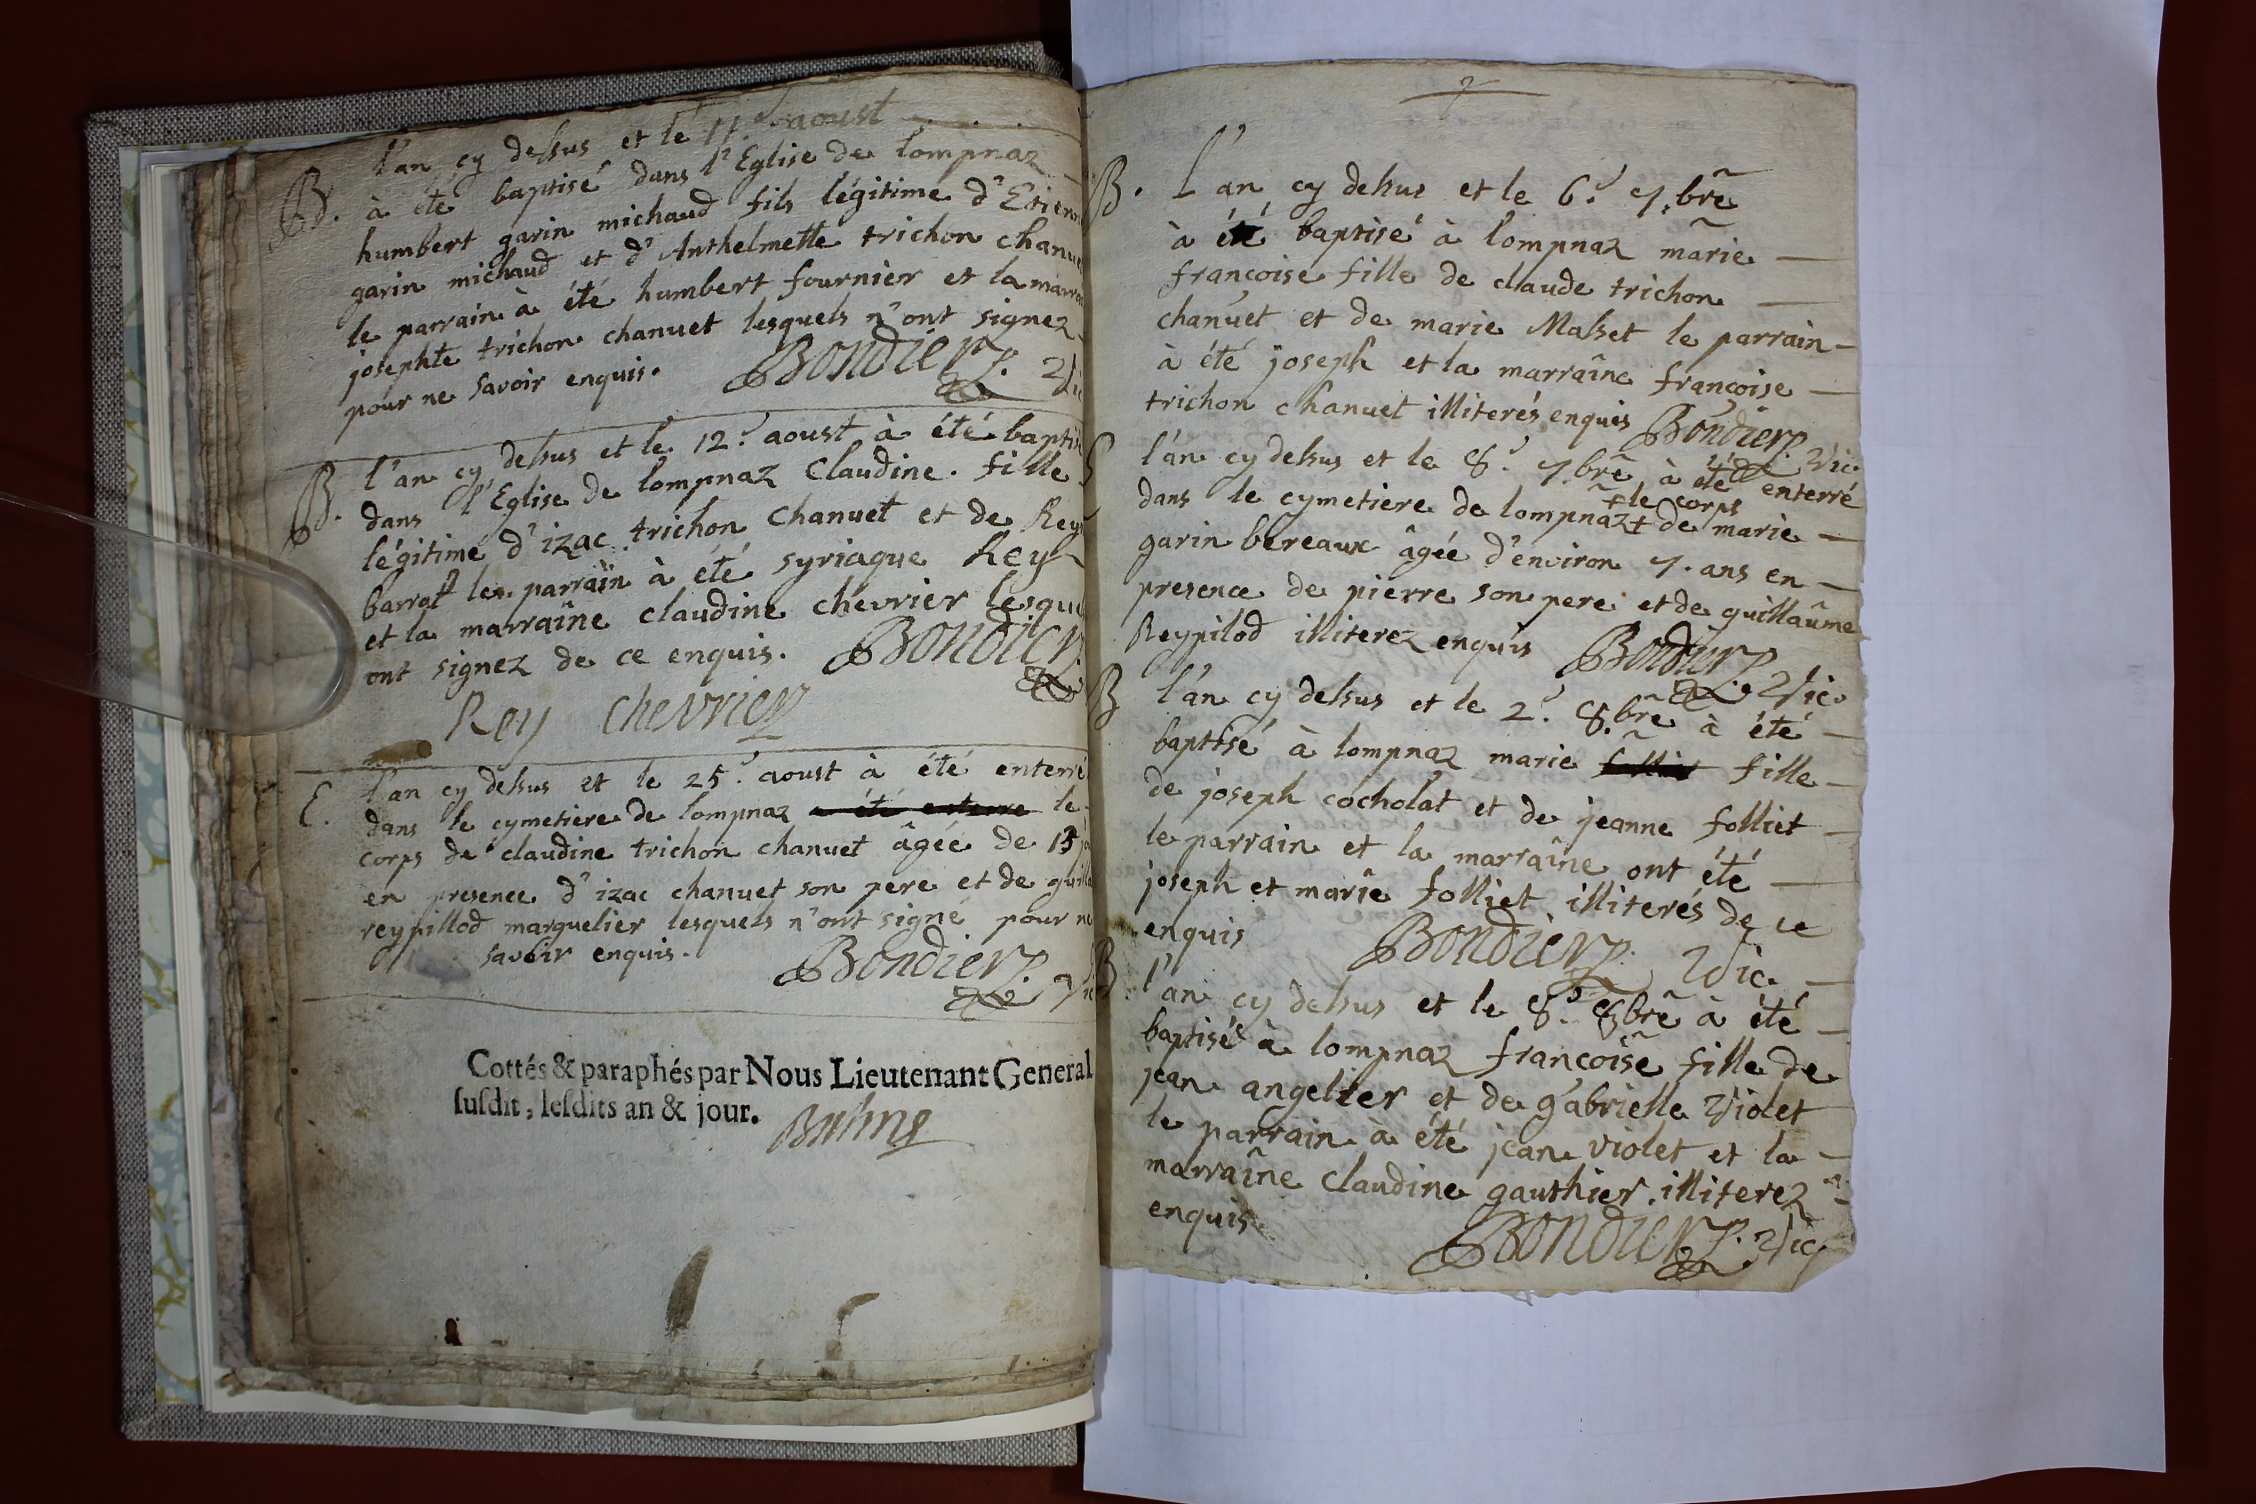 B. l'an cy dessus et le 11.e aoust
à été baptisé dans l'Eglise de lompnaz
humbert garin michaud fils légitime d'Etien
garin michaud et d'Anthelmette trichon chanu
le parrain à été humbert fournier et la marra
josephte trichon chanuet lesquels n'ont signez
pour ne savoir enquis. Bondier p. Vic
B. l'an cy dessus et le 12.e aoust à été bapti
dans l'Eglise de lompnaz Claudine fille
légitime d'izac trichon chanuet et de Rey
barrat le parrain à été syriaque Rey
et la marraîne claudine chevrier lesqu
ont signez de ce enquis. Bondier
Rey chevrier
E. l'an cy dessus et le 25.e aoust à été enterré
dans le cymetiere de lompnaz a été enterre le
corps de claudine trichon chanuet âgée de 15 jo
en presence d'izac chanuet son pere et de guilla
reypillod marguelier lesquels n'ont signé pour ne
savoir enquis. Bondier p. Vic
Cottés & paraphés par Nous Lieutenant General
susdit, lesdits an & jour.
2
B. L'an cy dessus et le 6.e 7.brẽ
à été baptisé à lompnaz marie
françoise fille de claude trichon
chanuet et de marie Masset le parrain
à été joseph et la marraîne françoise
trichon chanuet illiterés enquis Bondier p. Vic.
l'an cy dessus et le 8.e 7.brẽ à été enterré
+le corps
dans le cymetiere de lompnaz+ de marie
garin bereaux âgée d'environ 7. ans en
presence de pierre son pere et de guillaûme
Reypilod illiterez enquis Bondier p. Vic.
B l'an cy dessus et le 2.e 8.brẽ à été
baptisé à lompnaz marie folliet fille
de joseph cocholat et de jeanne folliet
le parrain et la marraîne ont été
joseph et marie folliet illiterés de ce
enquis Bondier p. Vic.
B l'an cy dessus et le 8.e 8brẽ à été
baptisé à lompnaz françoise fille de
jean angelier et de gabrielle Violet
le parrain à été jean violet et la
marraîne claudine gauthier illiterez
enquis. Bondier p. Vic.